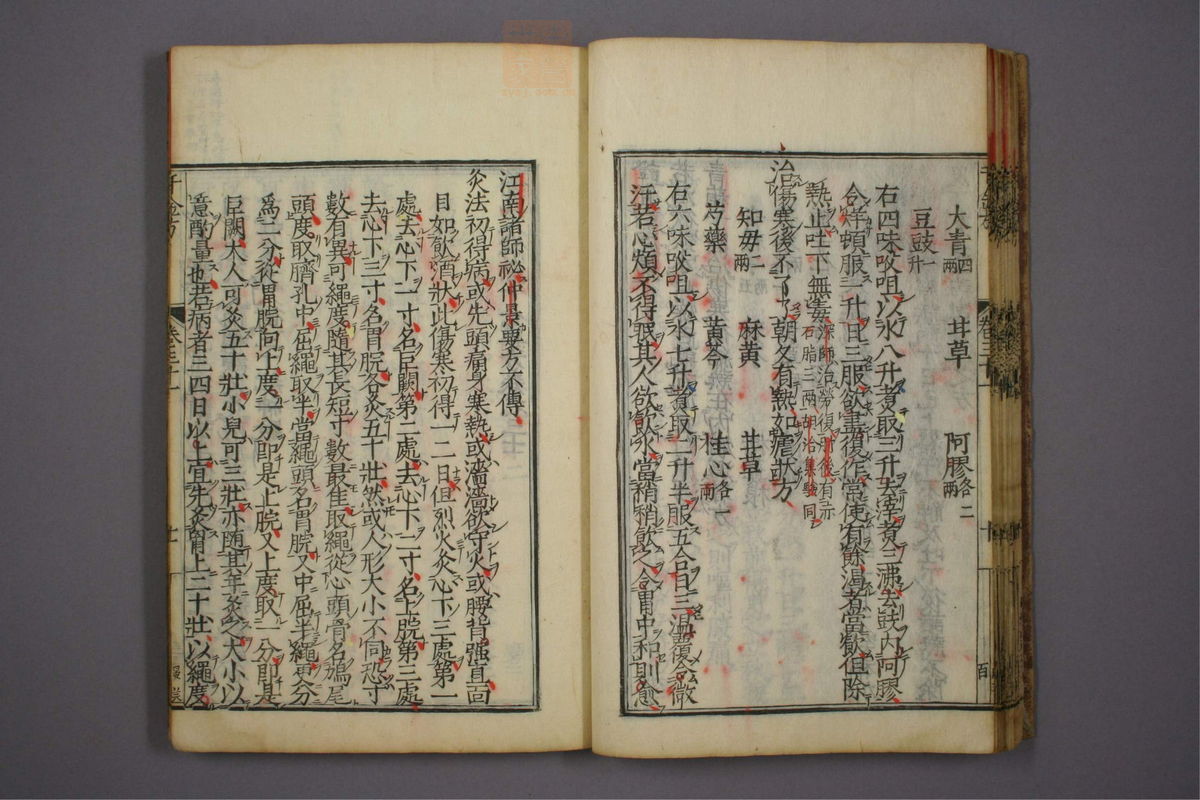 大青四兩　甘草　阿膠各二兩
豆豉一升
右四味㕮咀以水八升煮取三升去滓煮三沸去豉內阿膠
令烊頓服一升日三服欲盡復作常使有餘渴者當飲但除
熱止吐下無毒深師治勞復
石脂三兩胡洽集驗同
治傷寒後不了了朝夕有熱如瘧狀方
知母二兩　麻黃　甘草
芍藥　黃芩　桂心各一兩
右六味㕮咀以水七升煮取二升半服五合日三溫覆令微
汗若心煩不得眠其人欲飲水當稍稍飲之令胃中和則愈
江南諸師祕仲景要方不傳
灸法初得病或先頭痛身寒熱或濇濇欲守火或腰背強直面
目如飲酒狀此傷寒初得一二日但烈火灸心下三處第一
處去心下一寸名巨闕第二處去心下二寸名上脘第三處
去心下三寸名胃脘各灸五十壯然或人形大小不同恐寸
數有異可繩度隨其長短寸數最佳取繩從心頭骨名鳩尾
頭度取臍孔中屈繩取半當繩頭名胃脘又中屈半繩更分
爲二分從胃脘向上度一分即是上脘又上度取一分即是
巨闕大人可灸五十壯小兒可三壯亦隨其年灸之大小以
意斟量也若病者三四日以上宜先灸胷上二十壯以繩度
千金方
卷之十